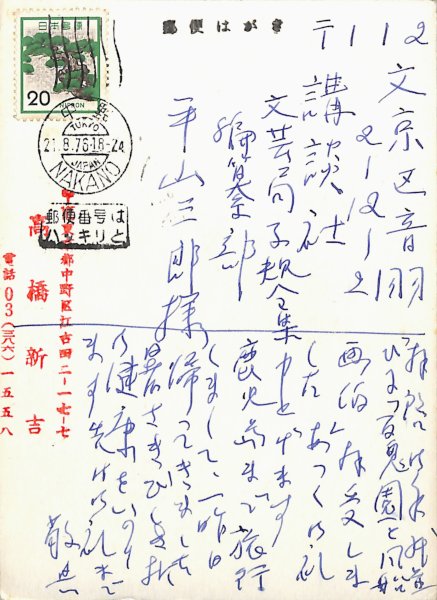 郵便はがき
〒112
文京区音羽
2-12-2
講談社
文芸局子規全集
編集部
平山三郎様
日本郵便
20
NIPPON
中野
TOKYO
21.8.76.18-24
JAPAN
NAKANO
郵便番号は
ハッキリと
東京都中野区江古田二ー一七ー七
高橋新吉
電話03(三八六)一五五八
拝啓
百鬼園と
画伯 拝受しま
した あつく御礼
申上げます
鹿児島まで旅行
しまして、一昨日
帰ってきました
暑さきびしき折
御健康をいのり
ます 先は御礼まで
敬具